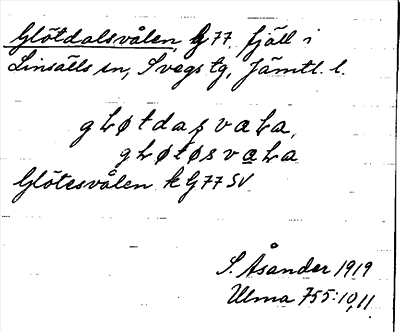 Glötdalsvålen, G 77. fjäll i
Linsälls sn, Svegs tg, Jämtl. l.
gLøtdaʂvaLa,
gLøtøsvaLa
Glötesvålen k G 77 SV
S. Åsander 1919
Ulma 755:10,11.